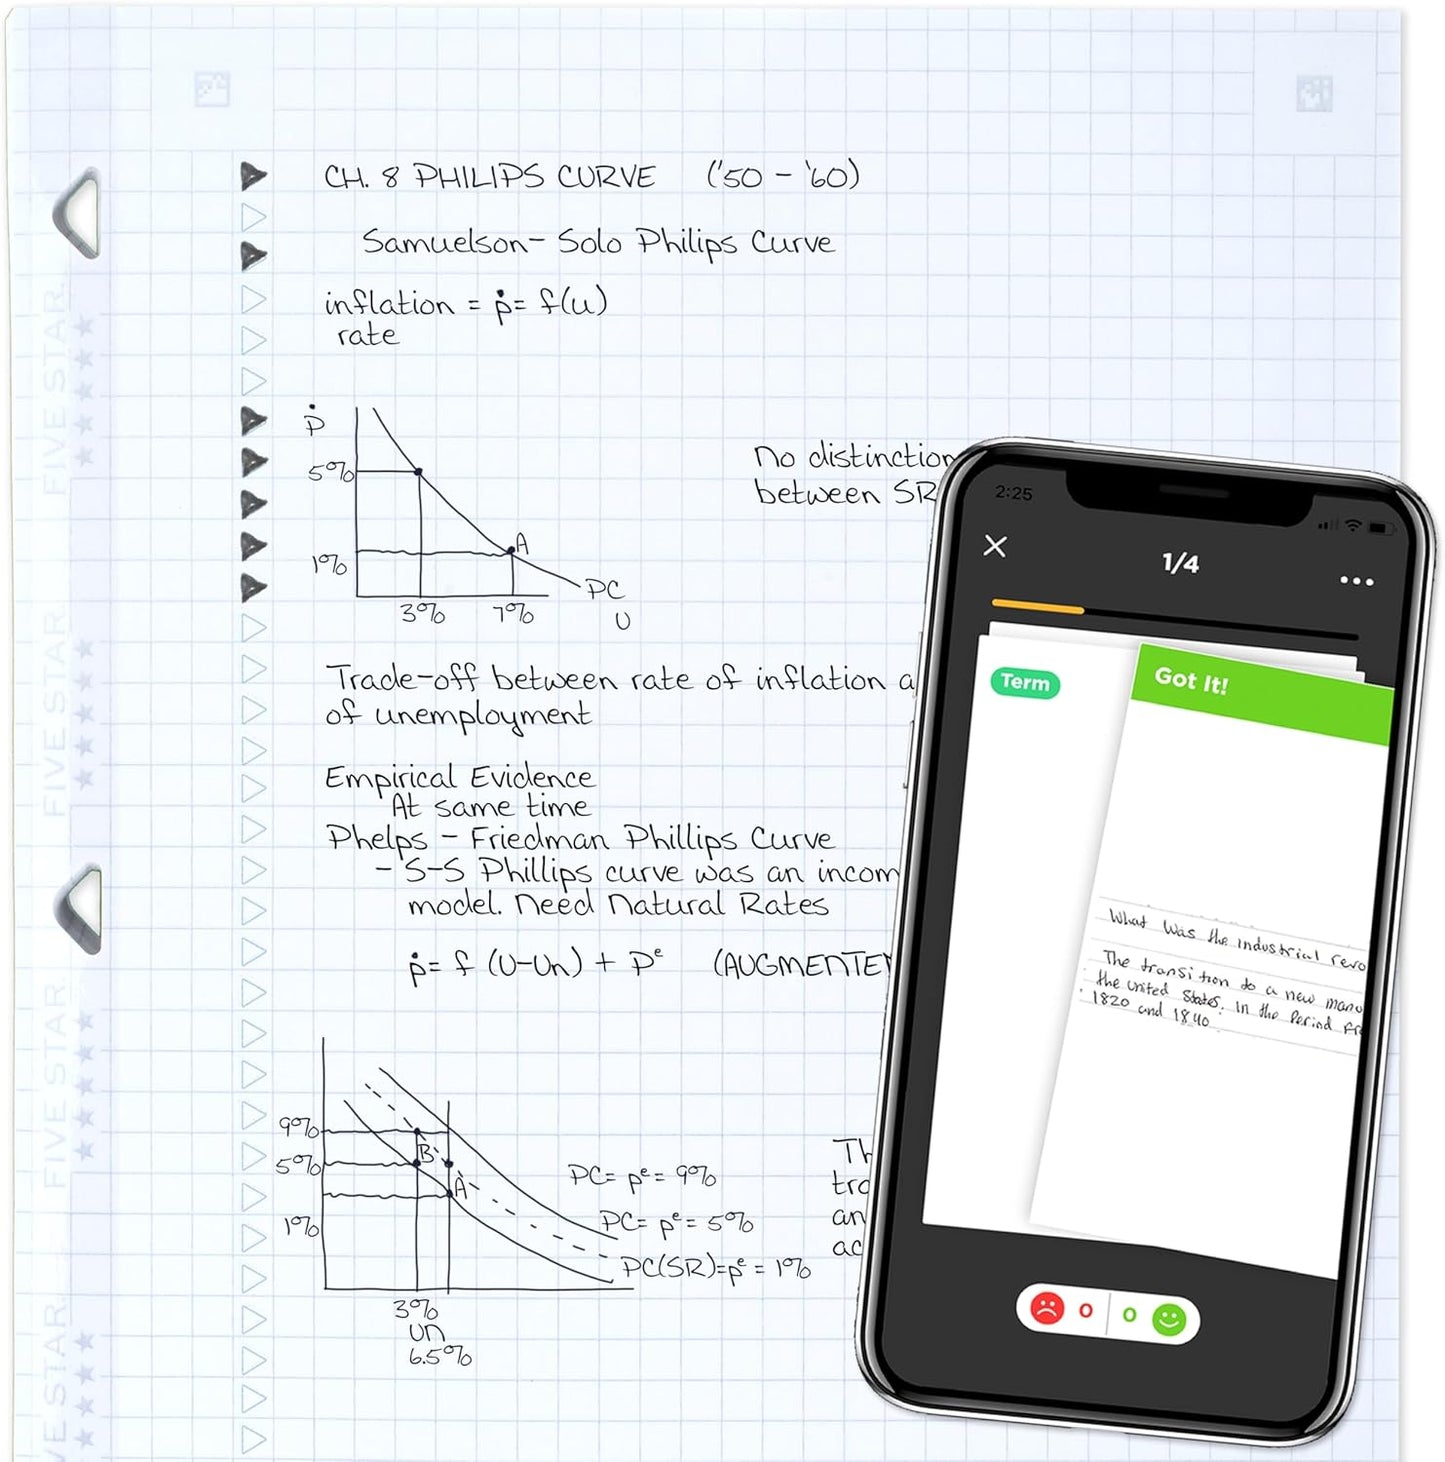 CH. 8 PHILIPS CURVE ('50 - '60)
Samuelson- Solo Philips Curve
inflation = ṗ= f(u)
rate
ṗ
5%
1%
A
PC
3% 7% U
No distinction
between SR
Trade-off between rate of inflation a
of unemployment
Empirical Evidence
At same time
Phelps - Friedman Phillips Curve
- S-S Phillips curve was an incom
model. Need Natural Rates
ṗ= f (U-Un) + Pᵉ (AUGMENTE
9%
5%
1%
B
A
PC= pᵉ= 9%
PC= pᵉ= 5%
PC(SR)=pᵉ= 1%
3%
Un
6.5%
Th
tra
an
ac
FIVE STAR
FIVE STAR
FIVE STAR
VE STAR
2:25
1/4
Term
Got It!
What was the industrial revo
The transition to a new manu
the United States, in the Period Fr
1820 and 1840
0 0